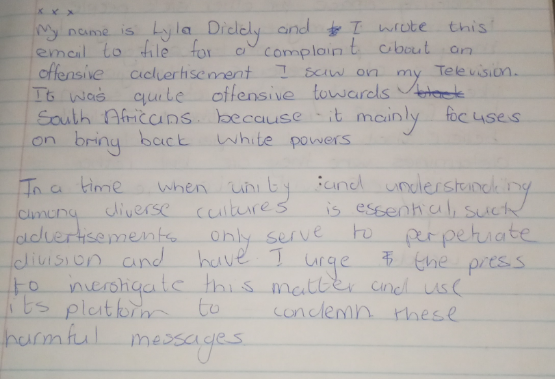 x x x
My name is Lyla Diddy and I wrote this
email to file for a complaint about an
offensive advertisement I saw on my Television.
It was quite offensive towards black
South Africans because it mainly focuses
on bring back white powers
In a time when unity and understanding
among diverse cultures is essential, such
advertisements only serve to perpetuate
division and have I urge the press
to investigate this matter and use
its platform to condemn these
harmful messages